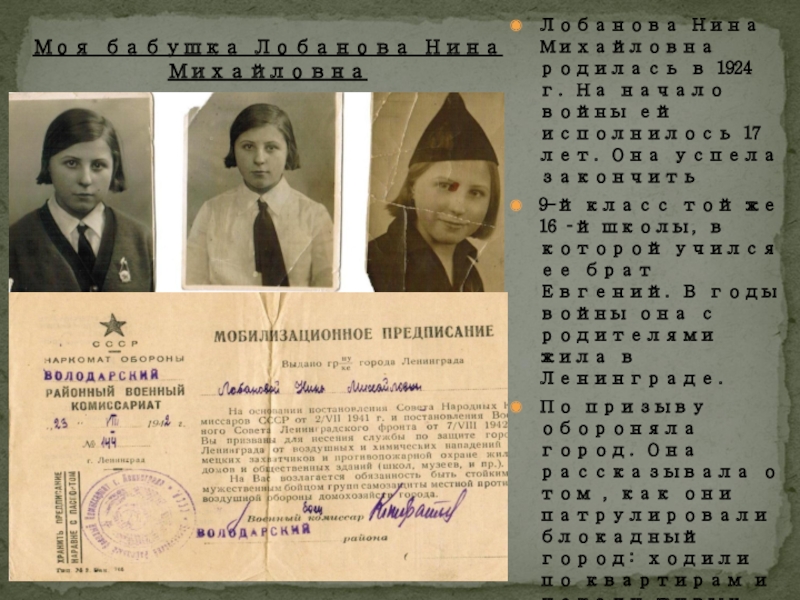 Моя бабушка Лобанова Нина
Михайловна
Лобанова Нина
Михайловна
родилась в 1924
г. На начало
войны ей
исполнилось 17
лет. Она успела
закончить
9-й класс той же
16 -й школы, в
которой учился
ее брат
Евгений. В годы
войны она с
родителями
жила в
Ленинграде.
По призыву
обороняла
город. Она
рассказывала о
том , как они
патрулировали
блокадный
город: ходили
по квартирам и
СССР
НАРКОМАТ ОБОРОНЫ
ВОЛОДАРСКИЙ
РАЙОННЫЙ ВОЕННЫЙ
КОМИССАРИАТ
23 VII 1942 г.
№ 144
г. Ленинград
ХРАНИТЬ ПРЕДПИСАНИЕ
НАРАВНЕ С ПАСПОРТОМ
МОБИЛИЗАЦИОННОЕ ПРЕДПИСАНИЕ
Выдано гр-ну/ке города Ленинграда
Лобановой Нине Михайловне
На основании постановления Совета Народных К
миссаров СССР от 2/VII 1941 г. и постановления Вое
ного Совета Ленинградского фронта от 7/VIII 1942
Вы призваны для несения службы по защите горо
Ленинграда от воздушных и химических нападений
мецких захватчиков и противопожарной охране жил
домов и общественных зданий (школ, музеев, и пр.).
На Вас возлагается обязанность быть стойким
мужественным бойцом групп самозащиты местной проти
воздушной обороны домохозяйств города.
Военный комиссар
ВОЛОДАРСКИЙ
района